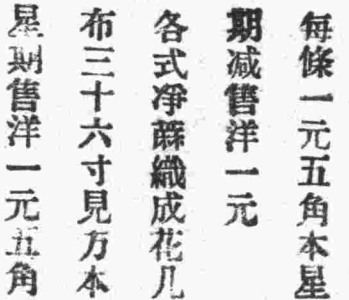 每條一元五角本星
期减售洋一元
各式淨蔴織成花几
布三十六寸見方本
星期售洋一元五角